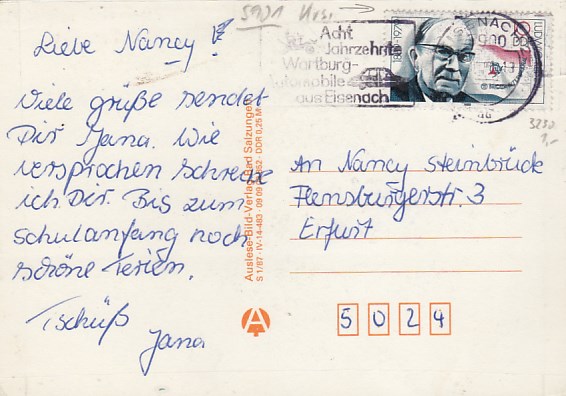 5901
Liebe Nancy!
Viele grüße sendet
Dir Jana. Wie
versprochen schreibe
ich Dir. Bis zum
schulanfang noch
schöne Ferien.
Tschüß
Jana
Acht
Jahrzehnte
Wartburg-
Automobile
aus Eisenach
DDR
3230
1,-
Auslese-Bild-Verlag Bad Salzungen
S 1/87 · IV-14-483 · 09 09 · DDR 0,25 M
An Nancy Steinbrück
Flensburgerstr. 3
Erfurt
5024